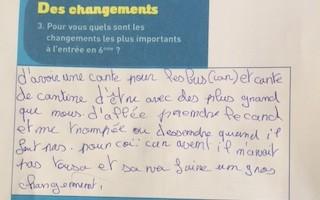 Des changements
3. Pour vous quels sont les
changements les plus importants
à l'entrée en 6ème ?
d'avoir une cante pour les bus (can) et cante
de cantine d'être avec des plus grand
que nous. d'allée prendre le cand
et me trompée ou dessendre quand il
faut pas. pour coi can avent il m'avait
pas tousa et sa va faire un gros
changement.